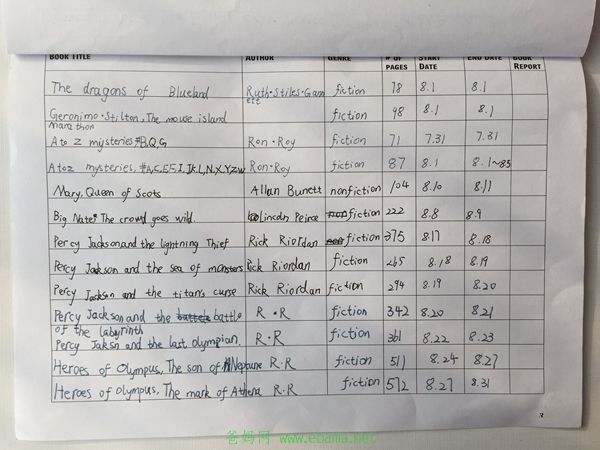 BOOK TITLE AUTHOR GENRE # OF PAGES START DATE END DATE BOOK REPORT
The dragons of Blueland Ruth·Stiles·Gannett fiction 78 8.1 8.1
Geronimo·Stilton, The mouse island marathon fiction 98 8.1 8.1
A to Z mysteries #B,Q,G Ron·Roy fiction 71 7.31 7.31
A to Z mysteries, #A,C,E,F,I,J,K,L,N,X,Y,Z,W Ron·Roy fiction 87 8.1 8.1~8.5
Mary, Queen of Scots Allan Burnett nonfiction 104 8.10 8.11
Big Nate: The crowd goes wild. Lincoln Peirce fiction 222 8.8 8.9
Percy Jackson and the lightning Thief Rick Riordan fiction 375 8.17 8.18
Percy Jackson and the sea of monsters Rick Riordan fiction 265 8.18 8.19
Percy Jackson and the titan's curse Rick Riordan fiction 294 8.19 8.20
Percy Jackson and the battle battle of the labyrinth R·R fiction 342 8.20 8.21
Percy Jakson and the last olympian. R·R fiction 361 8.22 8.23
Heroes of Olympus, The son of Neptune R·R fiction 511 8.24 8.27
Heroes of olympus, The mark of Athena R·R fiction 572 8.27 8.31
爸妈网 www.ebama.net